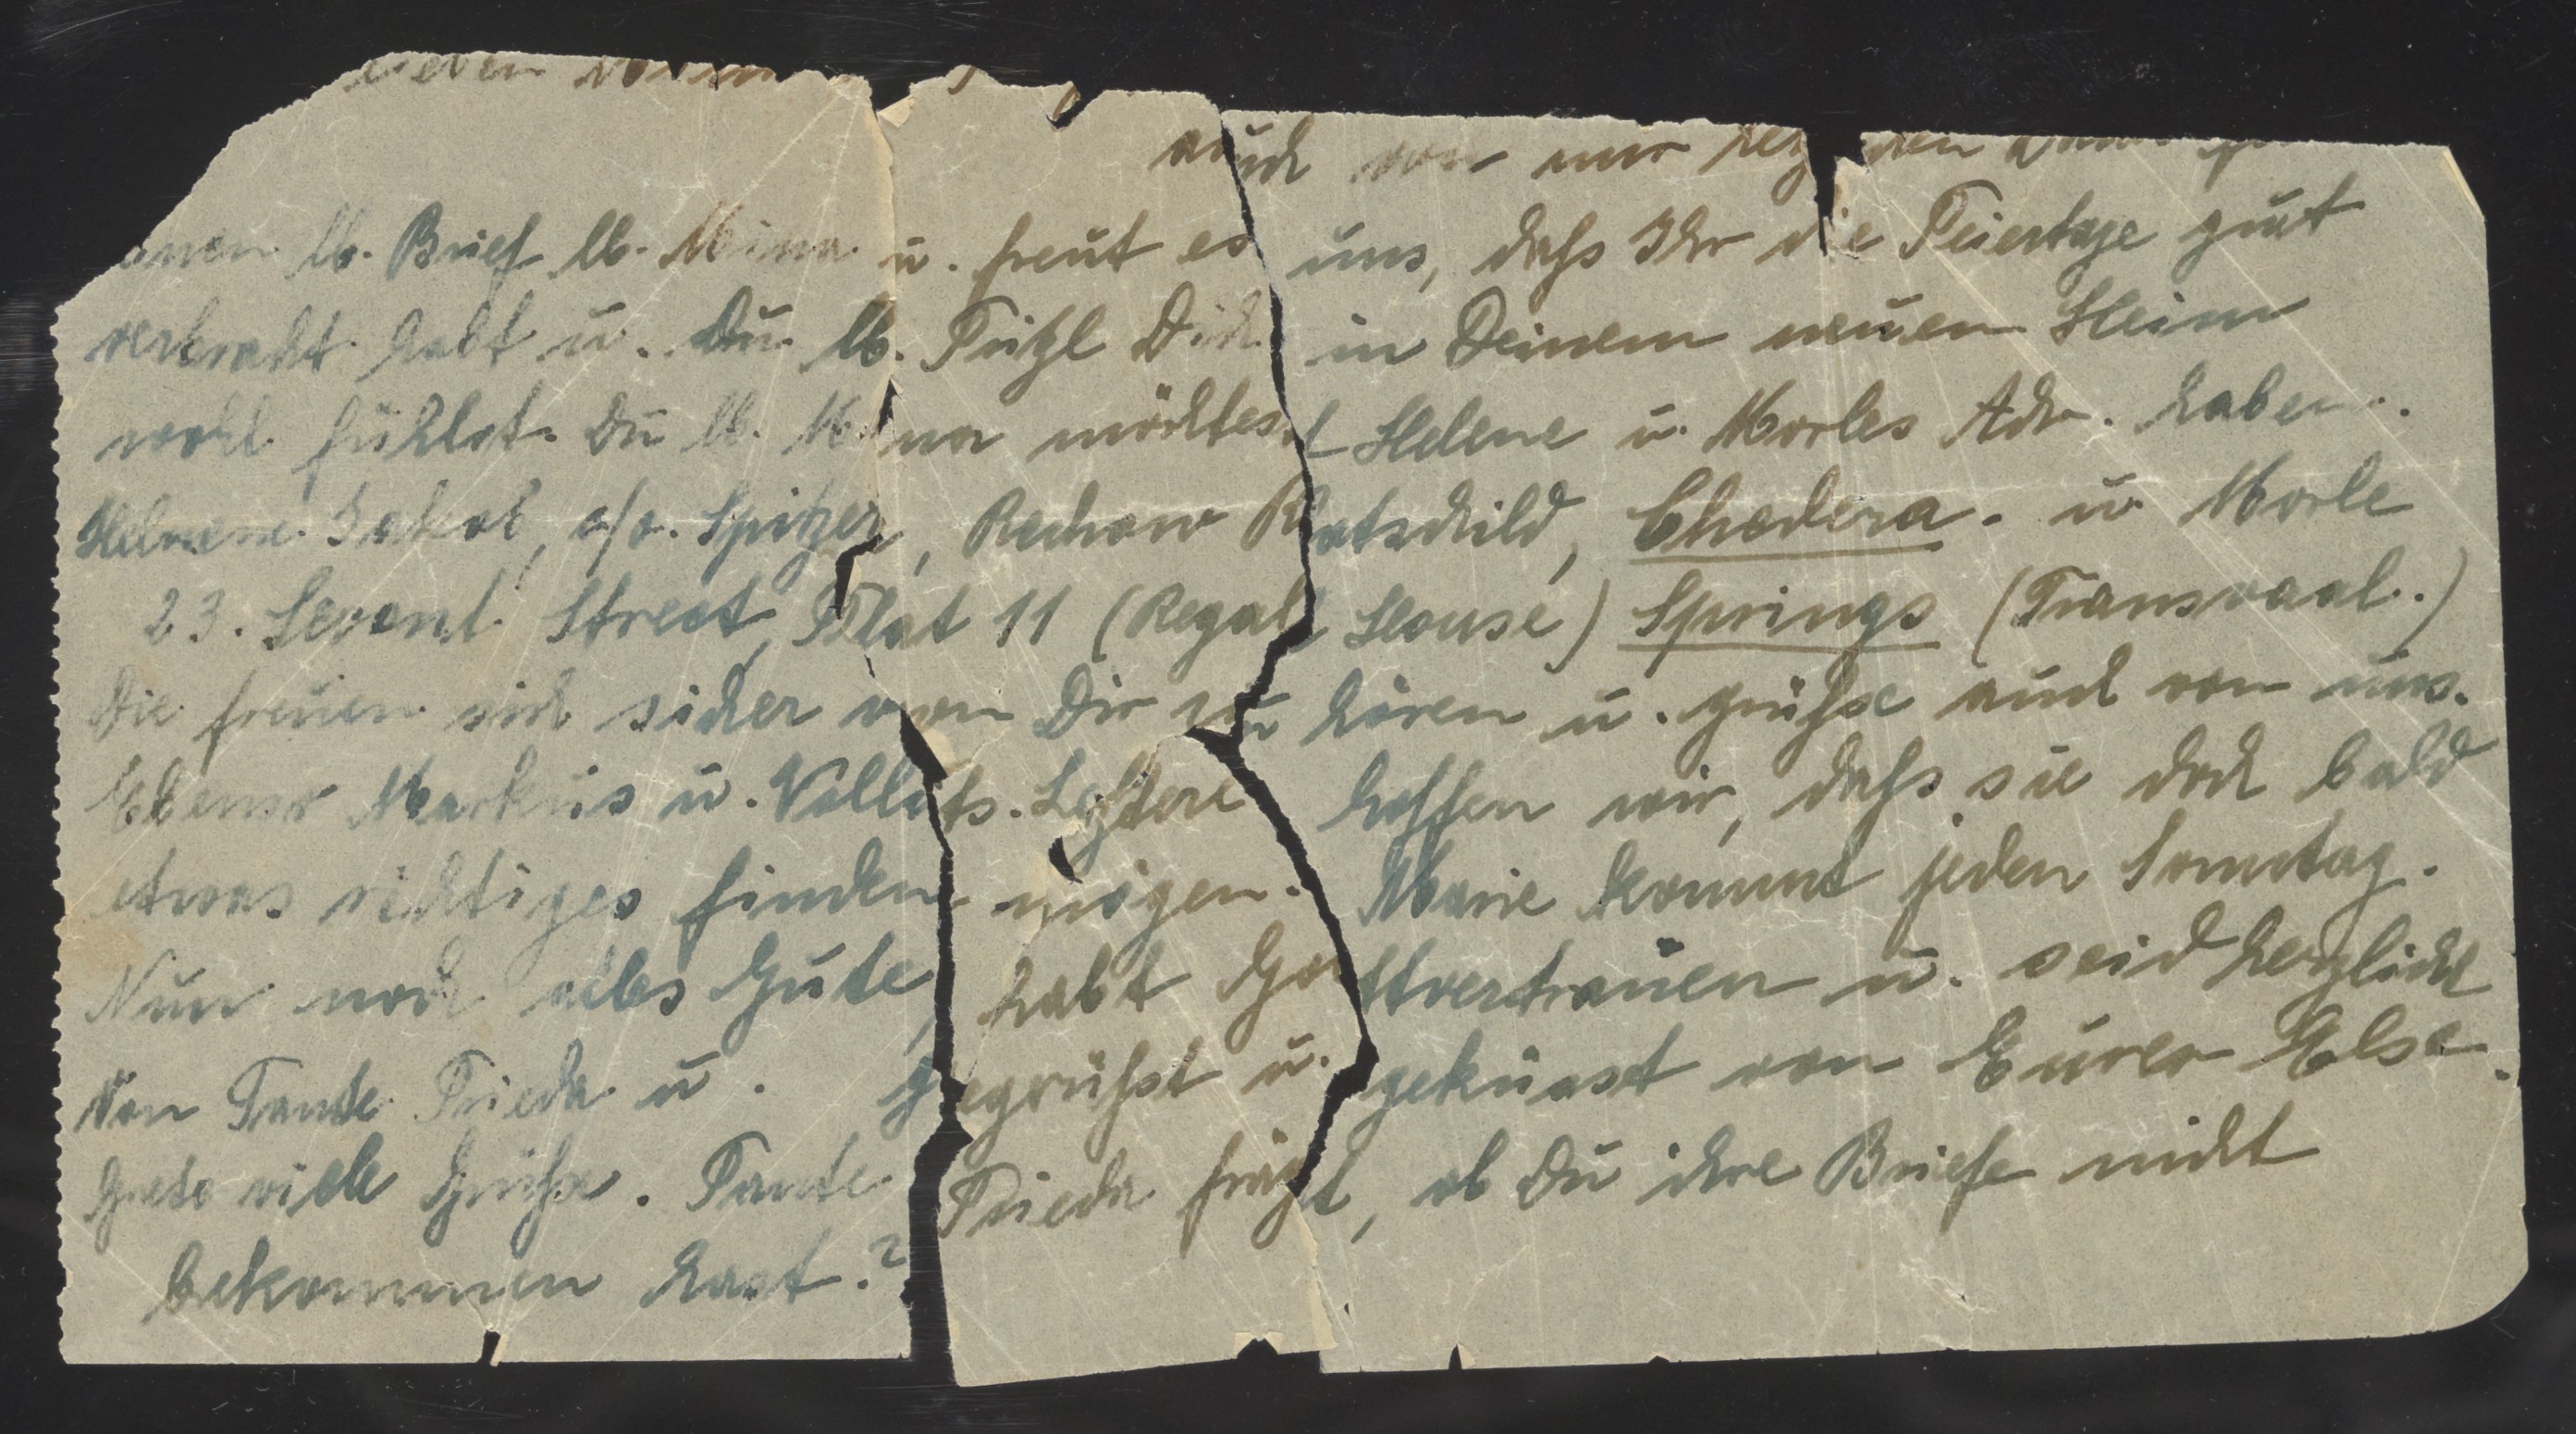 lieben
auch von mir
lb. Brief lb. Mina u. freut es uns, dass Ihr die Feiertage gut
verbracht habt u. Du lb. Fritzl Dich in Deinem neuen Heim
wohl fühlst. Du lb. Mina möchtest Helene u. Morles Adr. haben.
Helene Jakob, c/o. Spitzer, Rechow Rotschild, Chedera. u. Morle
23. Sevent Street, Flat 11 (Regal House) Springs (Transvaal.)
Die freuen sich sicher von Dir zu hören u. grüße auch von uns.
Ebenso Markus u. Letztere hoffen wir, dass sie doch bald
etwas richtiges finden mögen. Marie kommt jeden Sonntag.
Nun noch alles Gute, habt Gottvertrauen u. seid herzlichst
gegrüßt u. geküsst von Eurer Else.
Von Tante Frieda u.
Grete viele Grüße. Tante Frieda frägt, ob Du ihre Briefe nicht
bekommen hast.?